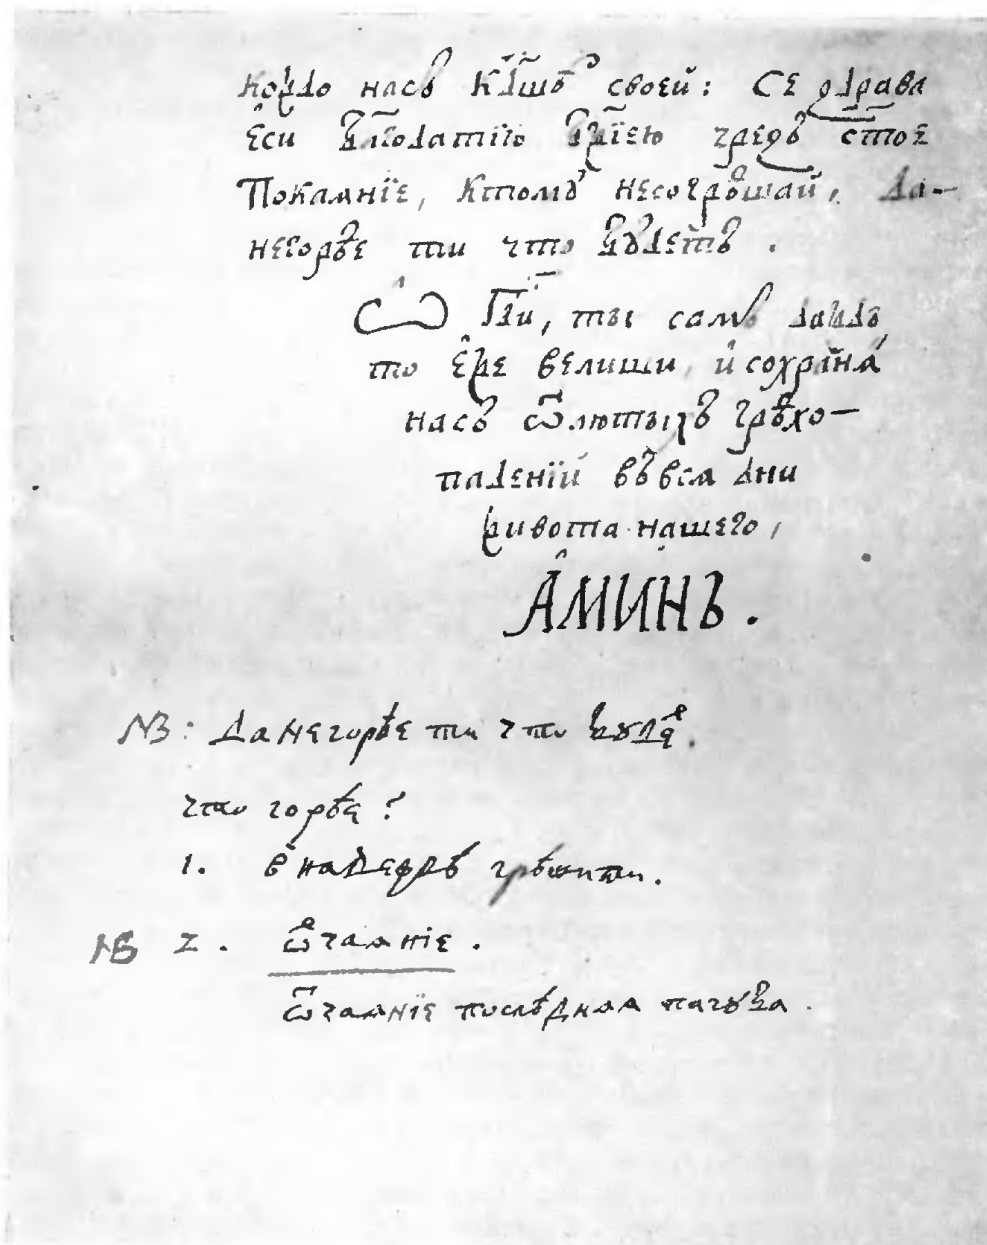 кождо насъ к дш҃ѣ своей: СЕ здрава
єси бл҃годатїю бж҃їею чрезъ ст҃ое
Покаянїе, ктомꙋ несогрѣшай, да-
негорѣе ти что бꙋдетъ.
Ѽ Гд҃и, ты самъ даждь
то єже велиши, и сохранѧ
насъ ѿлютыхъ грѣхо-
паденїй въ всѧ дни
живота нашего,
АМИНЬ.
NB: Да негорѣе ти что бꙋде.
что горѣе?
1. в надеждѣ грѣшити.
NB 2. ѿчаѧнїе.
ѿчаѧнїе послѣднѧѧ пагꙋба.